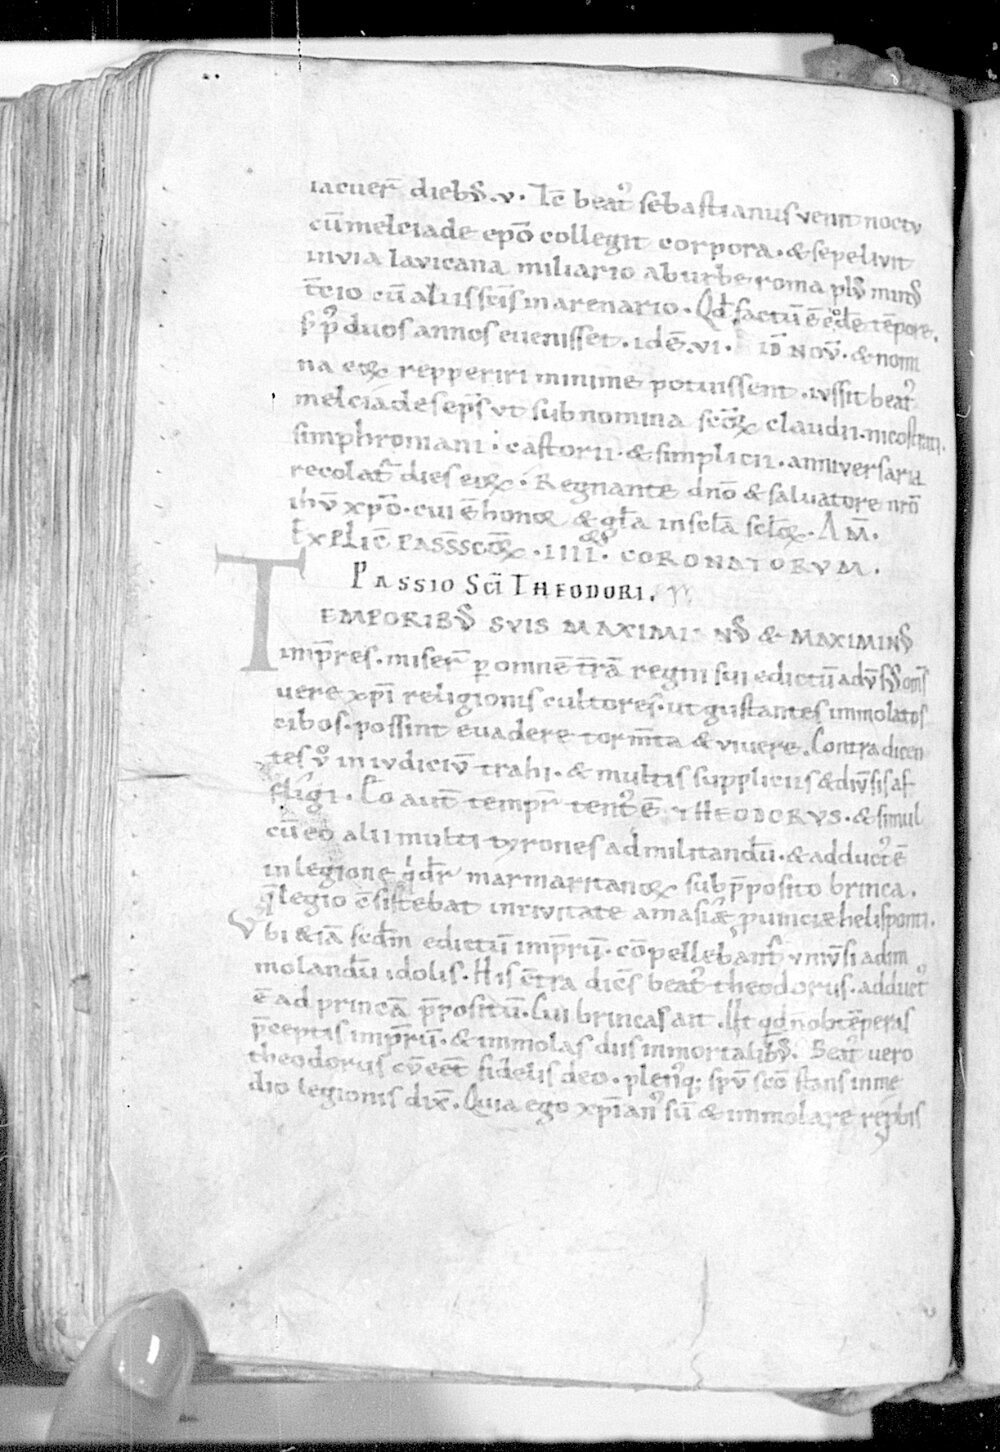 iacuer̄ dieb; .v. Tc̄ beat᾽ sebastianus venit noctv
cū melciade epō collegit corpora. & sepelivit
in via lavicana miliario ab urbe roma pl᾽ min᾽
t̄cio cū aliis sc̄is in arenario. Qd̄ factū ē eodē tēpore.
s; p᾽ duos annos evenisset. idē .vi. id̄ nov̄. & nomi
na eoꝝ repperiri minime potuissent. ivssit beat᾽
melciades ep̄s vt sub nomina sc̄oꝝ claudii. nicostrati.
simphroniani. castorii. & simplicii. anniversaria
recolat᾽ dies eoꝝ. Regnante dn̄o & salvatore nrō
ihū xp̄o. cui ē honor & gl̄a in scl̄a scl̄oꝝ. AM̄.
EXPLIC̄ PASS̄ SC̄OꝜ .IIII. CORONATORVM.
PASSIO SC̄I THEODORI.
TEMPORIB; SVIS MAXIMIANVS & MAXIMINVS
imp̄res. miser̄ p omnē t̄rā regni sui edictū adv̄sus om̄s
vere xp̄i religionis cultores. ut gustantes immolatos
cibos. possint evadere torm̄ta & vivere. Contradicen
tes v̊ in ivdiciū trahi. & multis suppliciis & div̄sis af
fligi. Eo aut̄ tempr̄ tent᾽ ē THEODORVS. & simul
cū eo alii multi tyrones ad militandū. & adduct᾽ ē
in legione q̇ dr̄ marmaritanoꝝ sub p̄posito brinca.
q̄ legio c̄sistebat in civitate amasiæ, puinciæ helisponti.
Vbi & iā scdm̄ edictū imp̄rū. cōpellebant᾽ univ̄si ad im
molandū idolis. His c̄tra dic̄s beat᾽ theodorus. adduct᾽
ē ad principē p̄positū. Cui brincas ait. Ut qd n̄ obtēperas
p̄ceptis imp̄rū. & immolas diis immortalib;. Beat᾽ uero
theodorus cū eēt fidelis deo. plenq; sp̄u sc̄o stans in me
dio legionis dix̄. Quia ego xp̄ian᾽ sū & immolare rep̄bis